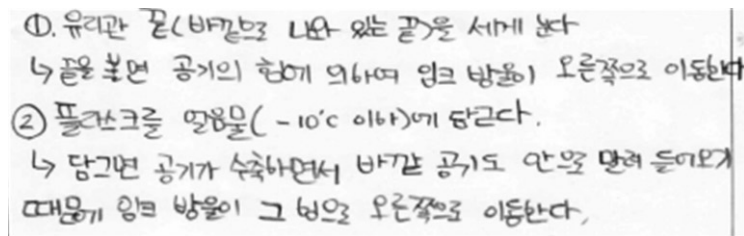 ①. 유리관 끝(바깥으로 나와 있는 끝)을 세게 분다
↳ 끝을 불면 공기의 힘에 의하여 잉크 방울이 오른쪽으로 이동한다
② 플라스크를 얼음물(-10℃ 이하)에 담근다.
↳ 담그면 공기가 수축하면서 바깥 공기도 안으로 말려 들어오기
때문에 잉크 방울이 그 힘으로 오른쪽으로 이동한다.